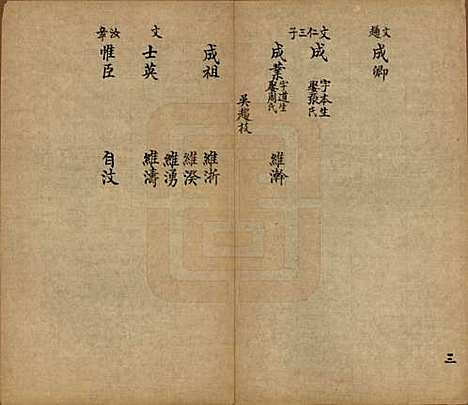 文趨 成卿
文仁三子 成 字本生 娶張氏
成業 字道生 娶周氏 維瀚
吴趨枝
成祖 維浙
維湀
維湧
文 士英 維濤
汝章 惟臣 自汶
三